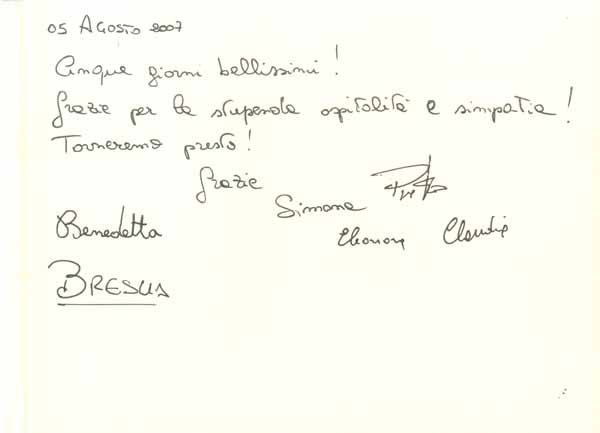 05 AGOSTO 2007
Cinque giorni bellissimi!
Grazie per la stupenda ospitalità e simpatia!
Torneremo presto!
Grazie
Simona
Benedetta
Eleonora Claudia
BRESCIA